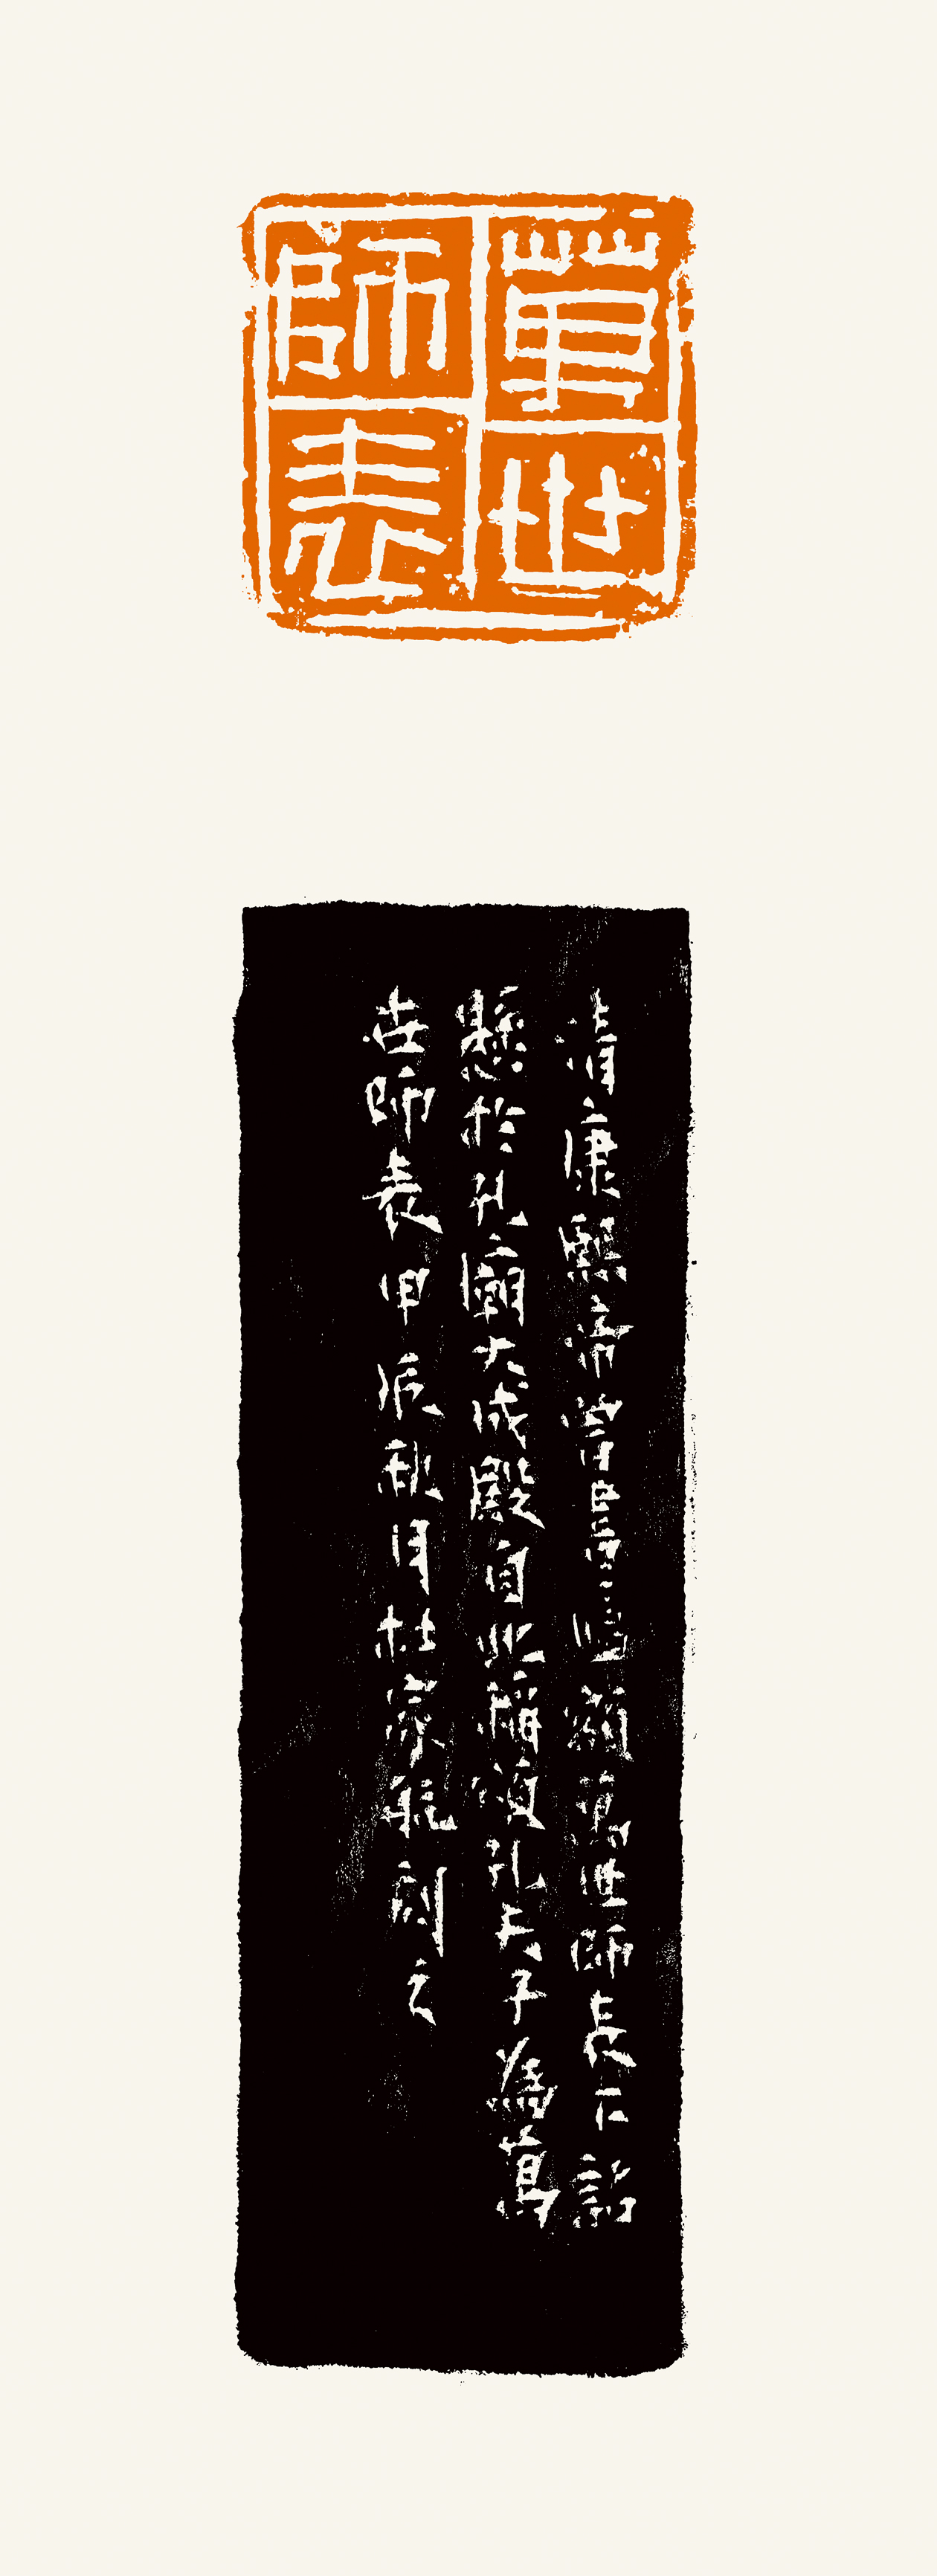 萬世
師表
清康熙帝曾賜額萬世師表下詔
懸於孔廟大成殿自此稱頌孔夫子為萬
世師表甲辰秋月杜家刻之